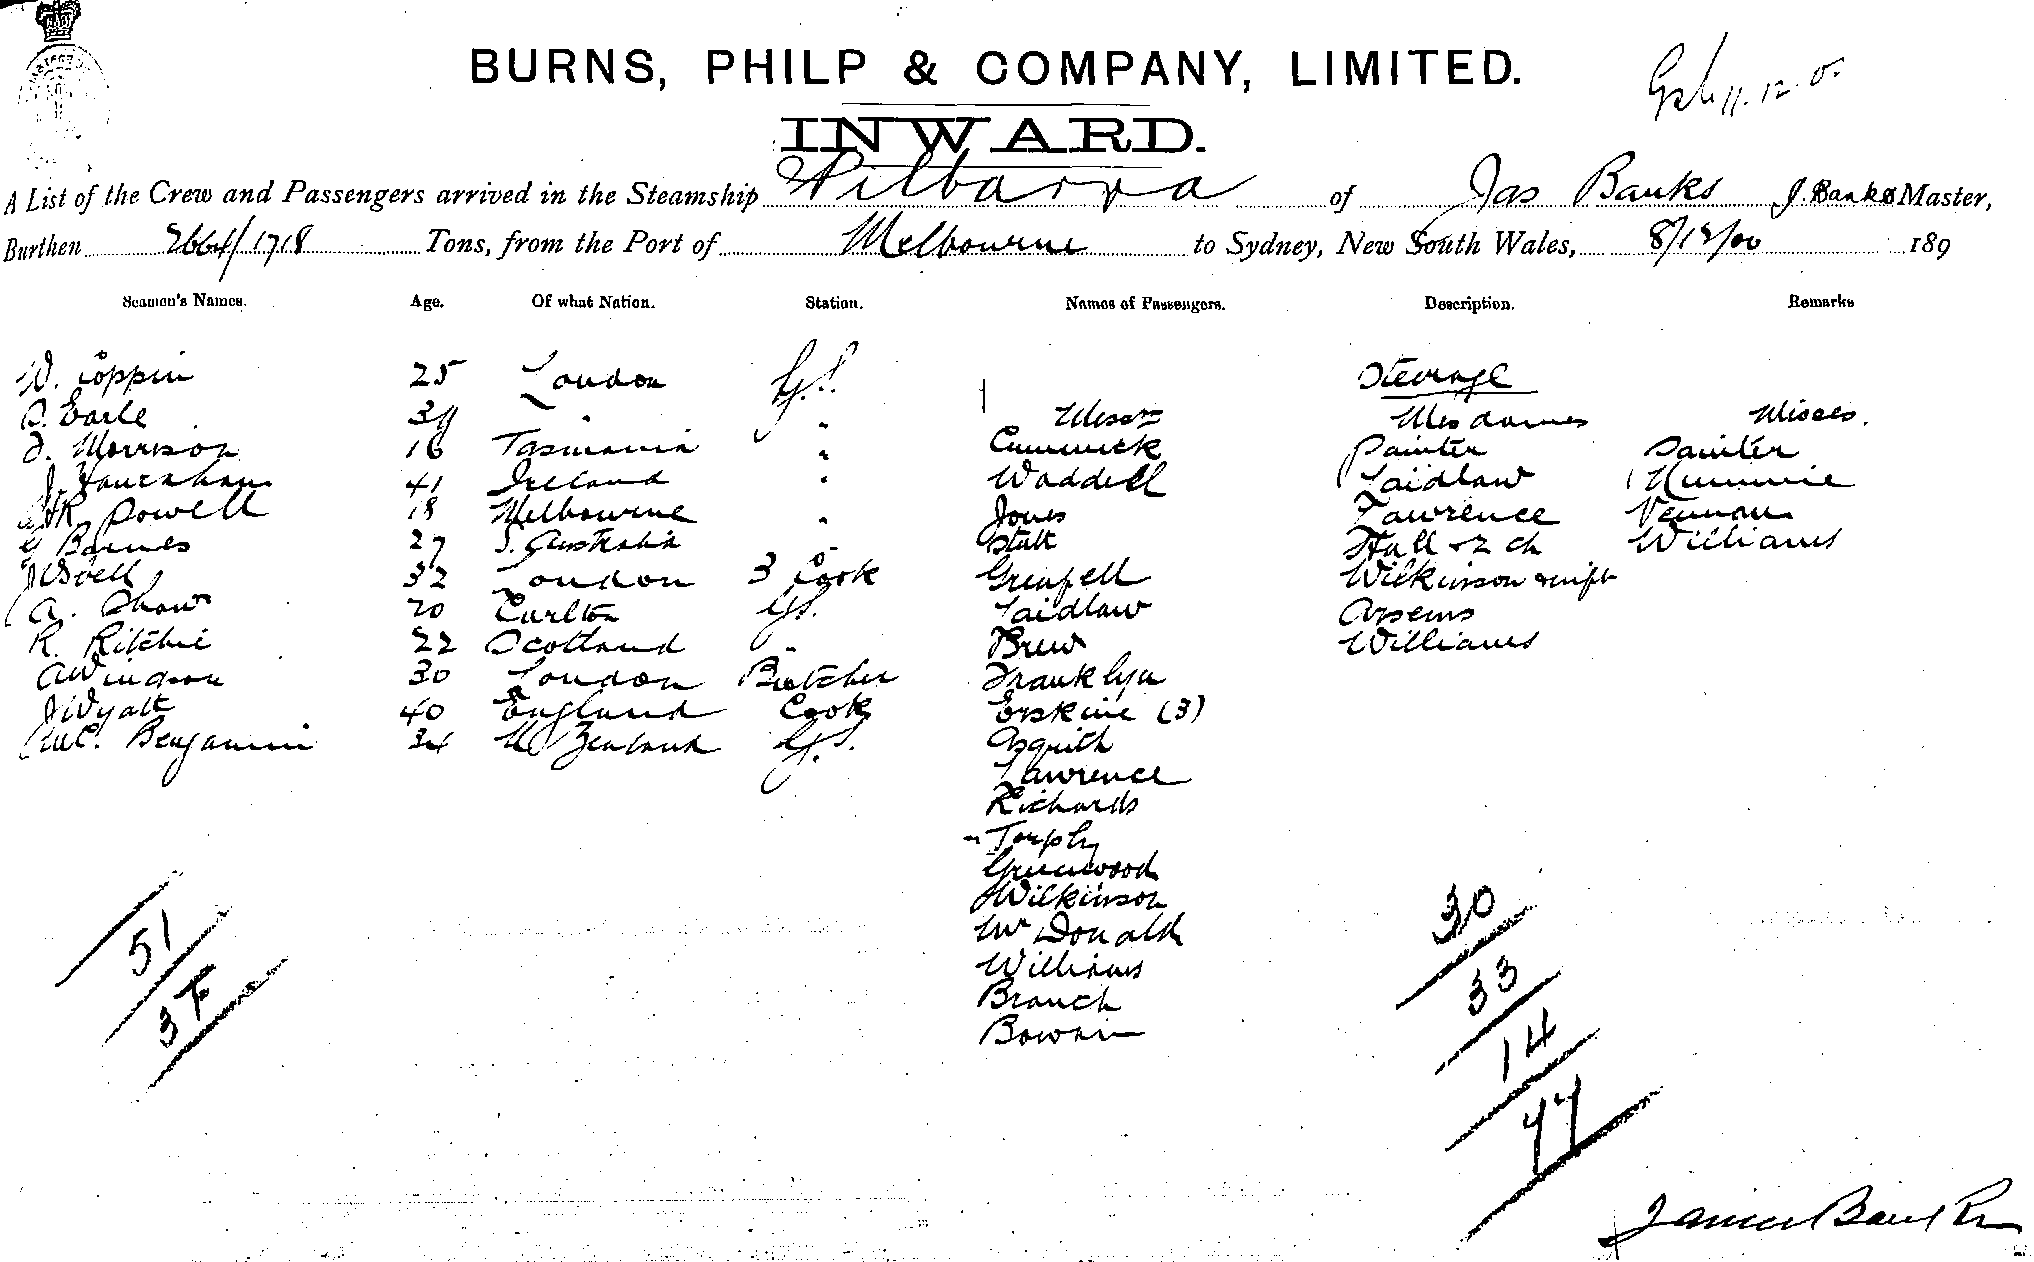 BURNS, PHILP & COMPANY, LIMITED.
11.12.0.
INWARD.
A List of the Crew and Passengers arrived in the Steamship Pilbarra of Jas Banks J. Banks Master,
Burthen 2664/1718 Tons, from the Port of Melbourne to Sydney, New South Wales, 8/12/00 189
Seamen's Names. Age. Of what Nation. Station. Names of Passengers. Description. Remarks
W. Coppin 25 London G.S. Steerage
Earle " Messrs Mesdames Misses.
Morrison 16 Tasmania " Cummick Painter Painter
J. 41 Ireland " Waddell Laidlaw Kimmie
Powell 18 Melbourne " Jones Lawrence Vernon
G Barnes 27 S. Australia Statt Hall & 2 ch Williams
32 London 3 Cook Grenfell Wilkinson & inft
A. Shaw 20 Carlton G.S. Laidlaw Arsems
R. Ritchie 22 Scotland " Brew Williams
A Wingson 30 London Butcher Franklyn
J Wyatt 40 England Cook Erskine (3)
Wm C. Benjamin 34 N Zealand G.S. Asquith
Lawrence
Richards
Torphy
Greenwood
Wilkinson
McDonald
Williams
Branch
Bowen
51
37
30
33
14
77
James Banks